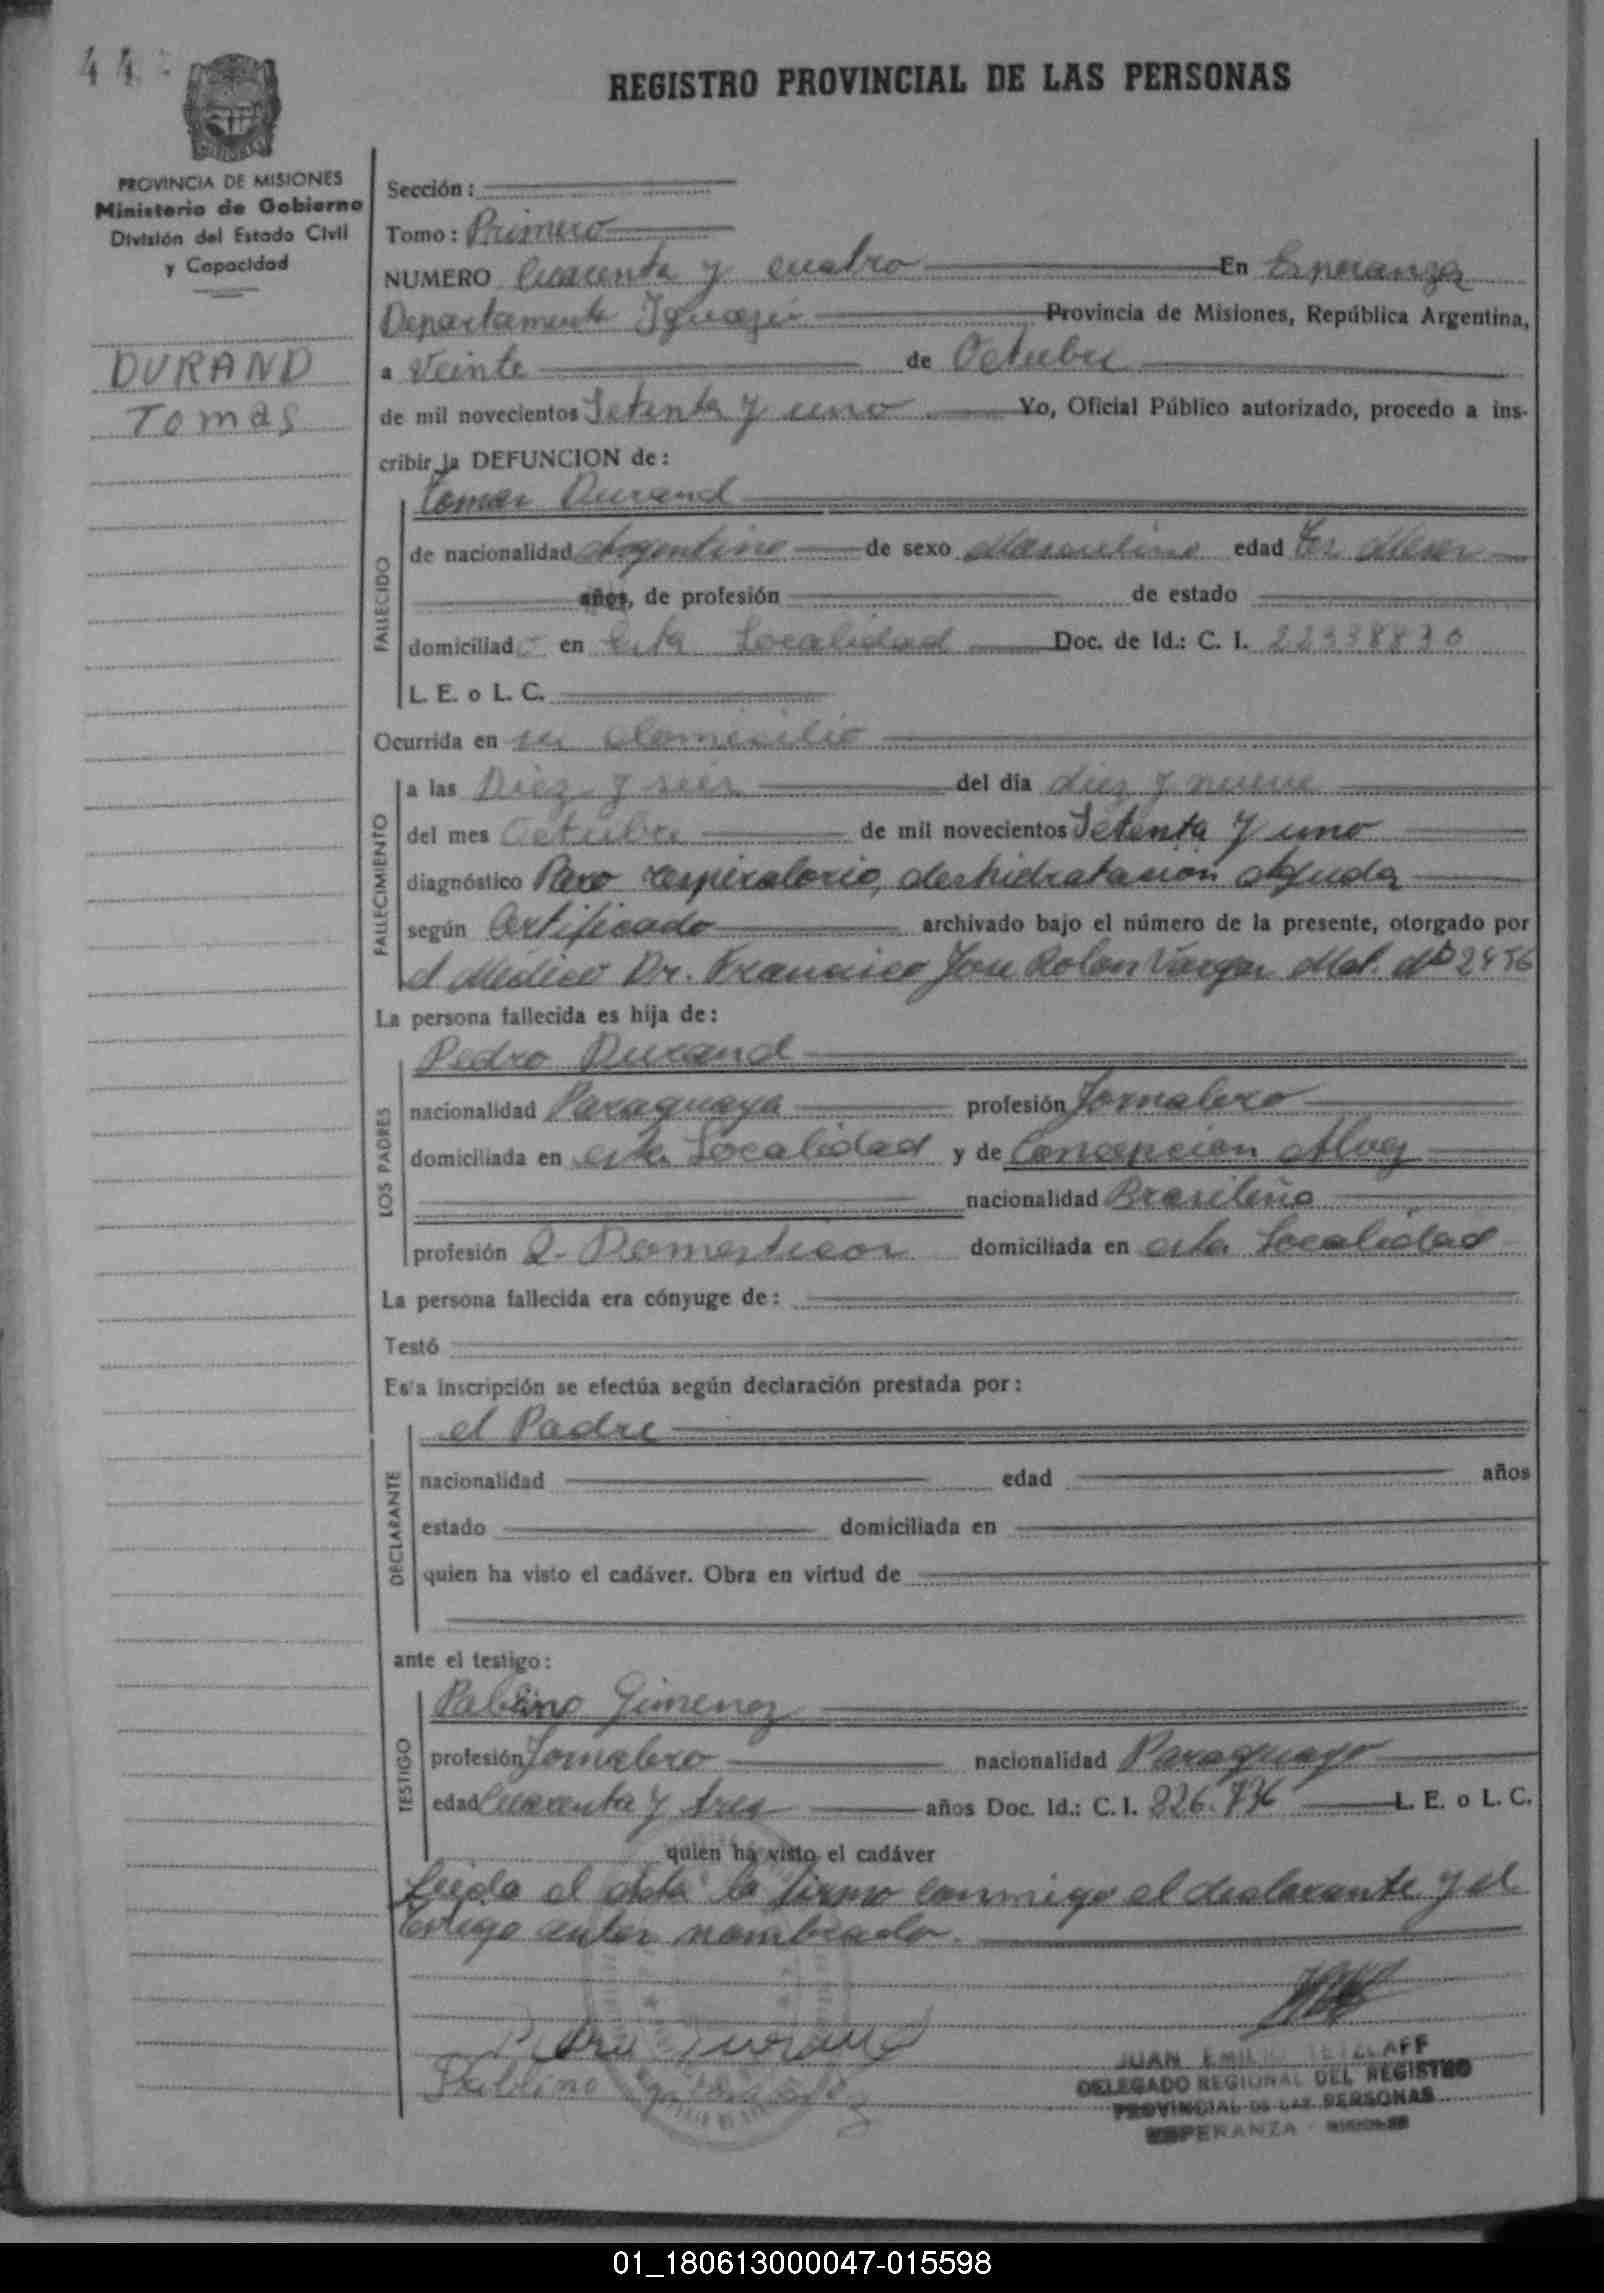 44
REGISTRO PROVINCIAL DE LAS PERSONAS
PROVINCIA DE MISIONES
Ministerio de Gobierno
División del Estado Civil
y Capacidad
DURAND
Tomas
Sección:
Tomo: Primero
NUMERO Cuarenta y cuatro En Esperanza
Departamento Iguazú Provincia de Misiones, República Argentina,
a Veinte de Octubre
de mil novecientos Setenta y uno Yo, Oficial Público autorizado, procedo a ins-
cribir la DEFUNCION de:
Tomas Durand
FALLECIDO
de nacionalidad Argentino de sexo Masculino edad Meses
años, de profesión de estado
domiciliad o en esta Localidad Doc. de Id.: C. I. 22338830
L. E. o L. C.
Ocurrida en su domicilio
FALLECIMIENTO
a las Diez y seis del día diez y nueve
del mes Octubre de mil novecientos Setenta y uno
diagnóstico Paro respiratorio, deshidratacion Aguda
según Certificado archivado bajo el número de la presente, otorgado por
el Médico Dr. Francisco Jose Rolon Vargas Mat. Nº 2456
La persona fallecida es hija de:
Pedro Durand
LOS PADRES
nacionalidad Paraguaya profesión Jornalero
domiciliada en esta Localidad y de Concepcion Alvez
nacionalidad Brasileña
profesión Q. Domesticos domiciliada en esta Localidad
La persona fallecida era cónyuge de:
Testó
Esta inscripción se efectúa según declaración prestada por:
el Padre
DECLARANTE
nacionalidad edad años
estado domiciliada en
quien ha visto el cadáver. Obra en virtud de
ante el testigo:
Pablino Gimenez
TESTIGO
profesión Jornalero nacionalidad Paraguayo
edad Cuarenta y tres años Doc. Id.: C. I. 226.736 L. E. o L. C.
quien ha visto el cadáver
Leida el Acta la firma conmigo el declarante y el
testigo antes nombrado.
Pedro Durand
Pablino
JUAN EMILIO TETZLAFF
DELEGADO REGIONAL DEL REGISTRO
PROVINCIAL DE LAS PERSONAS
ESPERANZA - MISIONES
01_180613000047-015598